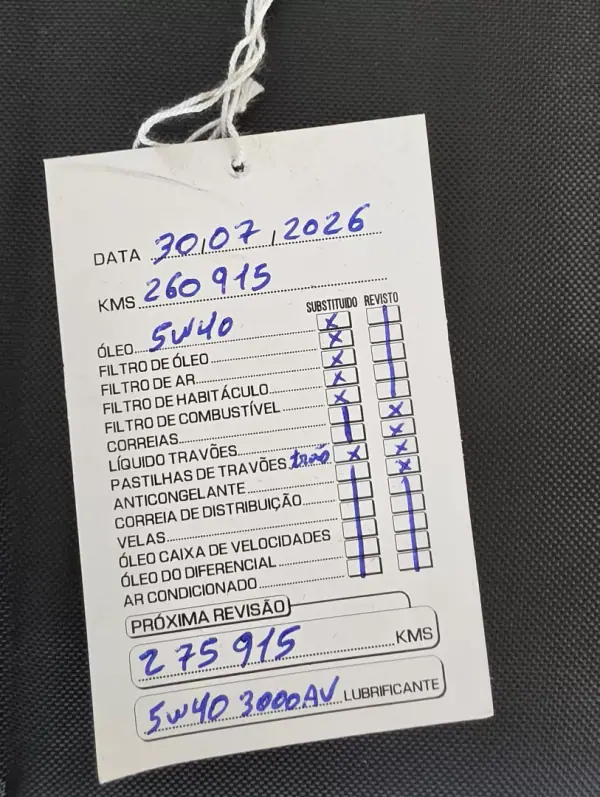 DATA 30/07/2026
KMS 260 915
SUBSTITUIDO REVISTO
ÓLEO 5W40
FILTRO DE ÓLEO
FILTRO DE AR
FILTRO DE HABITÁCULO
FILTRO DE COMBUSTÍVEL
CORREIAS
LÍQUIDO TRAVÕES
PASTILHAS DE TRAVÕES
ANTICONGELANTE
CORREIA DE DISTRIBUIÇÃO
VELAS
ÓLEO CAIXA DE VELOCIDADES
ÓLEO DO DIFERENCIAL
AR CONDICIONADO
PRÓXIMA REVISÃO
275 915 KMS
5W40 3000AV LUBRIFICANTE